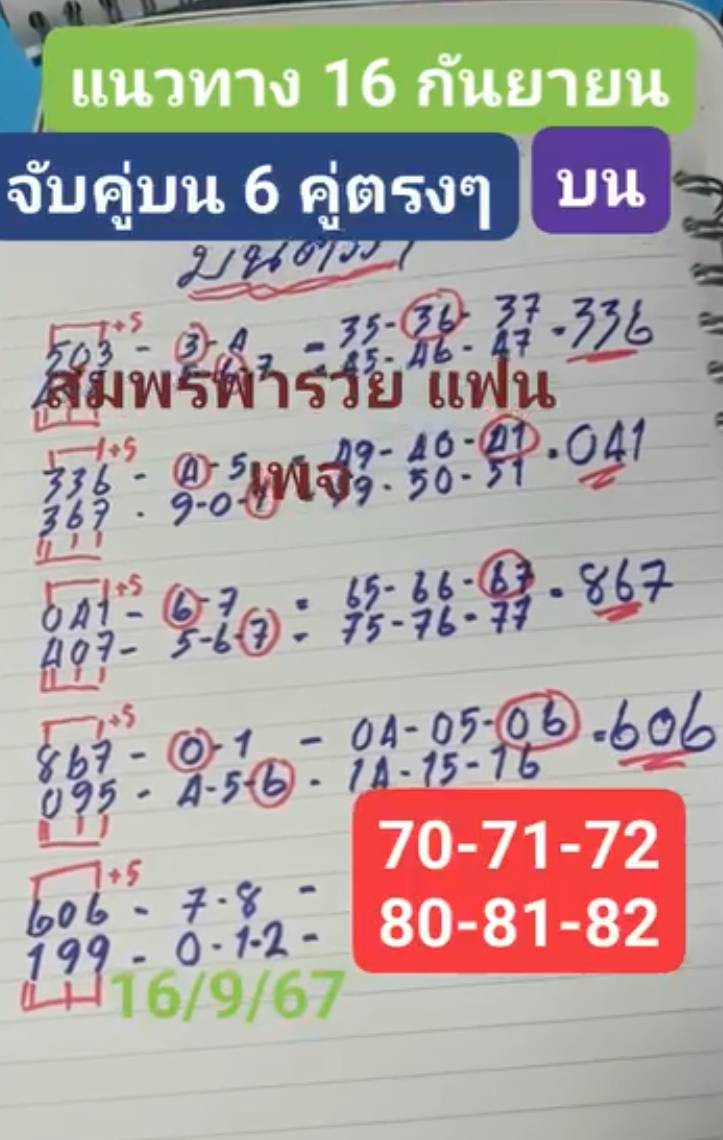 แนวทาง 16 กันยายน
จับคู่บน 6 คู่ตรงๆ
บน
บนตรงๆ
+5
503 - 3-4 = 35-36-37 - 336
6-7 = 45-46-47
สมพรพารวย แฟน
เพจ
+5
336 - 4-5 49-40-41 - 041
367 - 9-0-1 59-50-51
+5
041 - 6-7 = 65-66-67 - 867
407 - 5-6-7 = 75-76-77
+5
867 - 0-1 - 04-05-06 = 606
095 - 4-5-6 - 14-15-16
70-71-72
80-81-82
+5
606 - 7-8 -
199 - 0-1-2 -
16/9/67